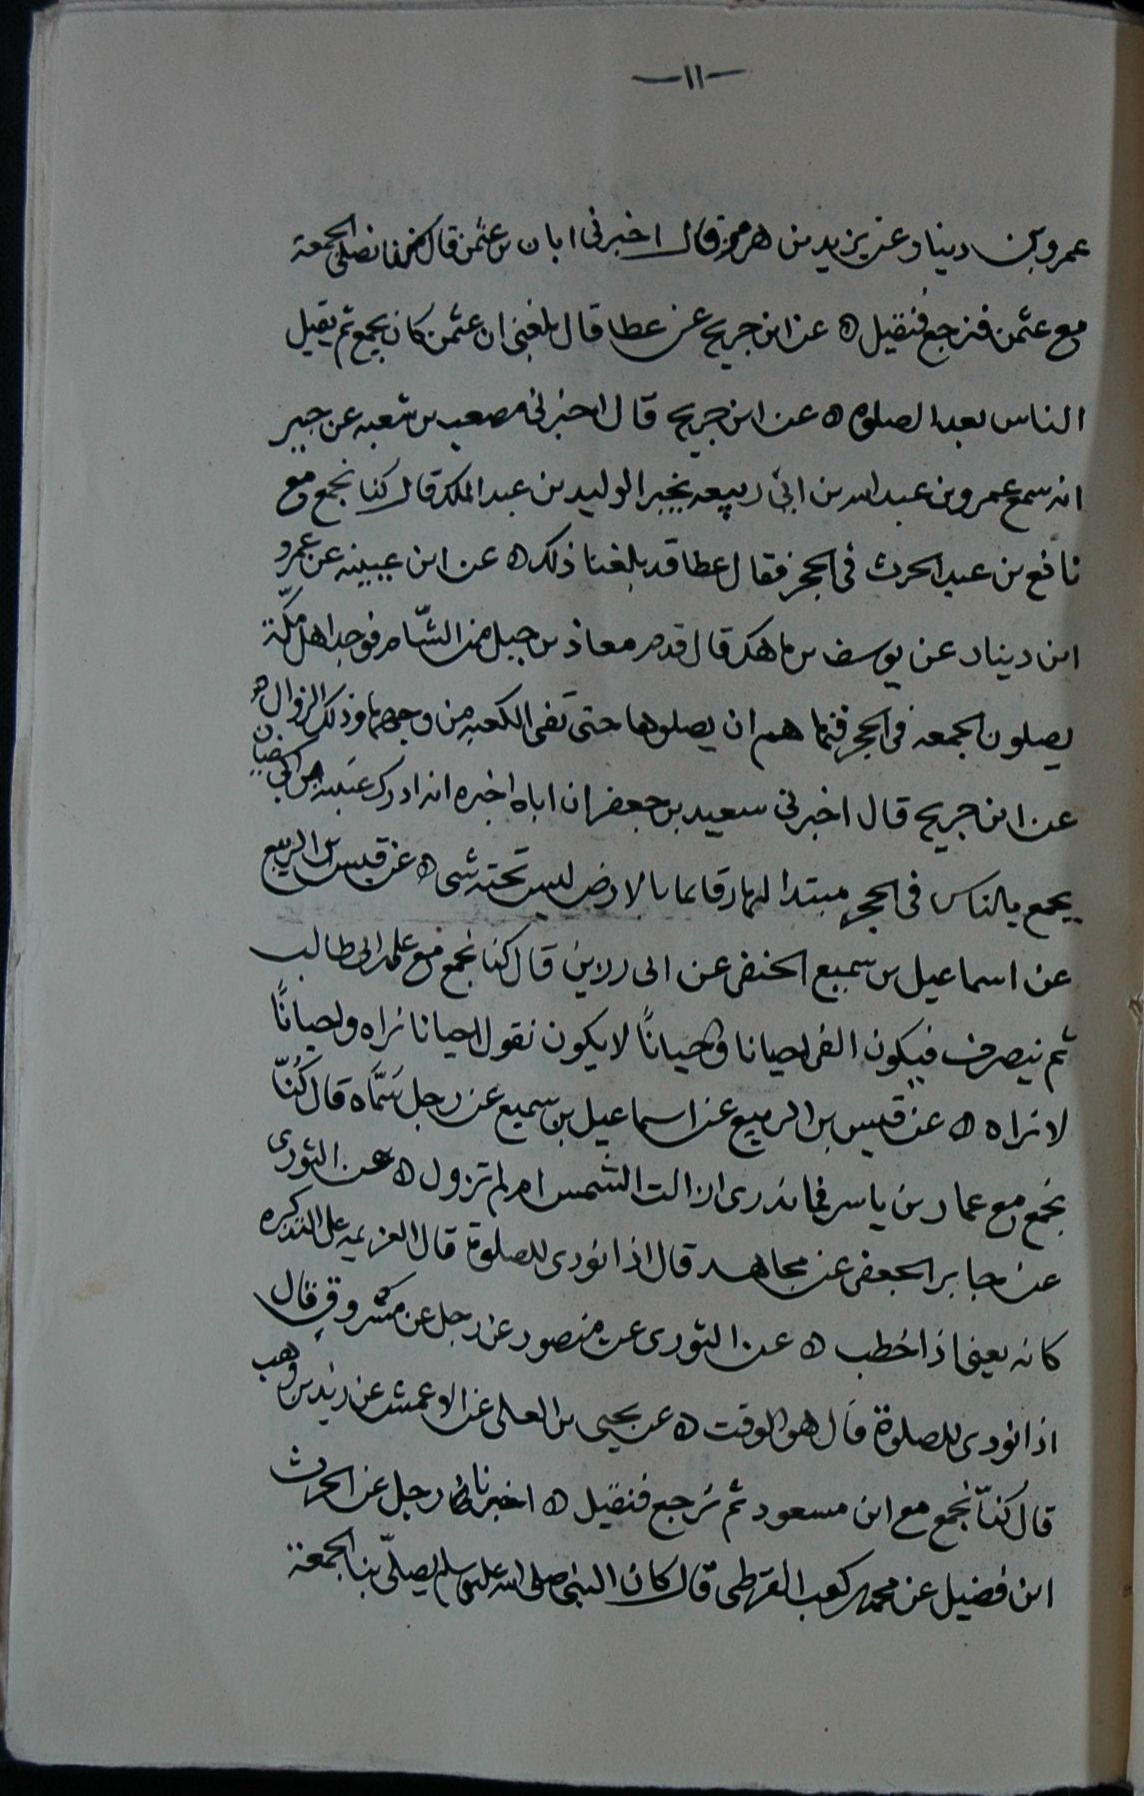 -١١-
عمرو بن دينار عن يزيد بن هرمز قال اخبرنى ابان بن عثمن قال كنا نصلى الجمعة
مع عثمن فنرجع فنقيل ه عن ابن جريج عن عطا قال بلغنى ان عثمن كان يجمع ثم يقيل
الناس بعد الصلوة ه عن ابن جريج قال اخبرنى مصعب بن شعبه عن جبير
انه سمع عمرو بن عبد الله بن ابى ربيعه يخبر الوليد بن عبد الملك قال كنا نجمع مع
نافع بن عبد الحرث فى الحجر فقال عطا قد بلغنا ذلك ه عن ابن عيينه عن عمرو
ابن دينار عن يوسف بن ماهك قال قدم معاذ بن جبل من الشّام فوجد اهل مكّة
يصلون الجمعه فى الحجر فنهاهم ان يصلوها حتى تفى الكعبه من وجهها وذلك الزوال ه
عن ابن جريج قال اخبرنى سعيد بن جعفر ان اباه اخبره انه ادرك عنبسه بن ابى سفيان
يجمع بالناس فى الحجر مبتدا النهار قائما بالارض ليس تحته شى ه عن قيس بن الربيع
عن اسماعيل بن سميع الحنفى عن ابى رزين قال كنا نجمع مع على بن ابى طالب
ثم ينصرف فيكون الفى احيانا واحيانًا لا يكون نقول احيانا نراه واحيانًا
لا نراه ه عن قيس بن الربيع عن اسماعيل بن سميع عن رجل سَمَّاه قال كُنّا
نجمع مع عمار بن ياسر فما ندرى ازالت الشمس ام لم تزول ه عن الثورى
عن جابر الجعفى عن مجاهد قال اذا نودى للصلوة قال العزيمه على التذكره
كانه يعنى اذا خطب ه عن الثورى عن منصور عن رجل عن مسروق قال
اذا نودى للصلوة قال هو الوقت ه عن يحيى بن العلى عن الاعمش عن زيد بن وهب
قال كُنّا نجمع مع ابن مسعود ثم نرجع فنقيل ه اخبرنا رجل عن الحرث
ابن فضيل عن محمد بن كعب القرظى قال كان النبى صلى الله عليه وسلم يصلّى بنا الجمعة